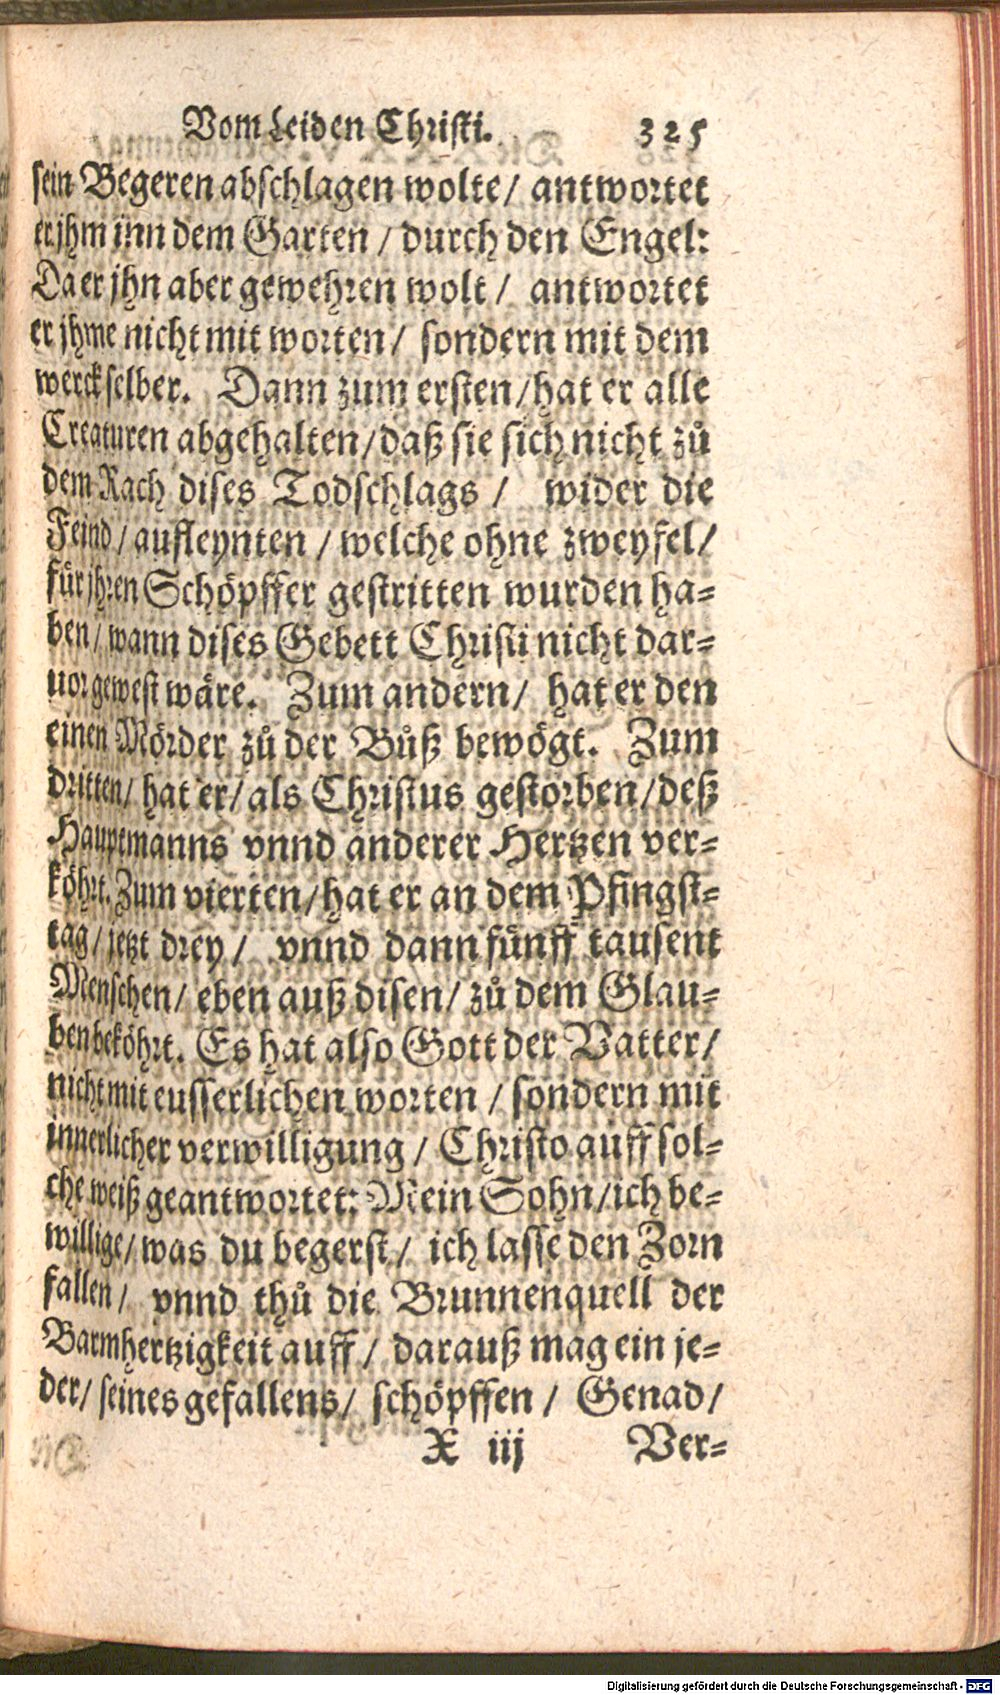 Vom Leiden Christi. 325
sein Begeren abschlagen wolte / antwortet
er jhm inn dem Garten / durch den Engel:
Da er jhn aber gewehren wolt / antwortet
er jhme nicht mit worten / sondern mit dem
werck selber. Dann zum ersten / hat er alle
Creaturen abgehalten / daß sie sich nicht zů
dem Rach dises Todschlags / wider die
Feind / aufleynten / welche ohne zweyfel /
für jhren Schöpffer gestritten wurden ha=
ben / wann dises Gebett Christi nicht dar=
uor gewest wäre. Zum andern / hat er den
einen Mörder zů der Bůß bewögt. Zum
dritten / hat er / als Christus gestorben / deß
Hauptmanns vnnd anderer Hertzen ver=
köhrt. Zum vierten / hat er an dem Pfingst=
tag / jetzt drey / vnnd dann fünff tausent
Menschen / eben auß disen / zů dem Glau=
ben beköhrt. Es hat also Gott der Vatter /
nicht mit eusserlichen worten / sondern mit
innerlicher verwilligung / Christo auff sol=
che weiß geantwortet: Mein Sohn / ich be=
willige / was du begerst / ich lasse den Zorn
fallen / vnnd thů die Brunnenquell der
Barmhertzigkeit auff / darauß mag ein je=
der / seines gefallens / schöpffen / Genad /
X iij Ver=
Digitalisierung gefördert durch die Deutsche Forschungsgemeinschaft - DFG